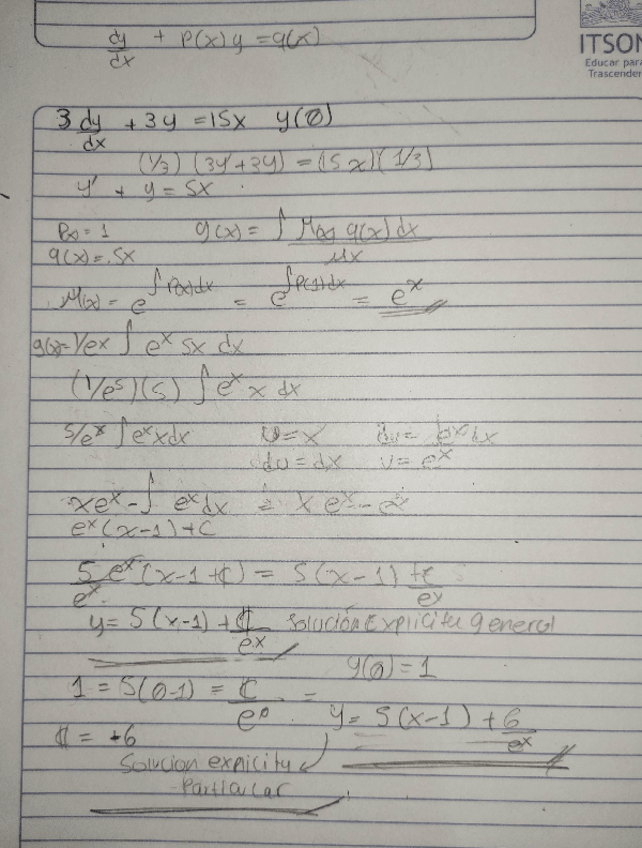 dy/dx + P(x)y = q(x)
ITSON
Educar para
Trascender
3 dy/dx + 3y = 15x y(0)
(1/3) (3y' + 3y) = (15x)(1/3)
y' + y = 5x
P(x) = 1 y(x) = ∫ M(x) q(x) dx / Mx
q(x) = 5x
M(x) = e^∫P(x)dx = e^∫P(1)dx = e^x
y(x) = 1/ex ∫ e^x 5x dx
(1/e^5)(5) ∫ e^x x dx
5/e^x ∫ e^x x dx u = x dv = ∫e^x dx
du = dx v = e^x
xe^x - ∫ e^x dx = x e^x - e^x
e^x (x-1) + C
5/e^x e^x (x-1 + C) = 5(x-1) + C/ex
y = 5(x-1) + C/ex Solución Explicita general
y(0) = 1
1 = 5(0-1) = C/e^0 =
y = 5(x-1) + 6/e^x
C = +6
Solucion expicita
Particular